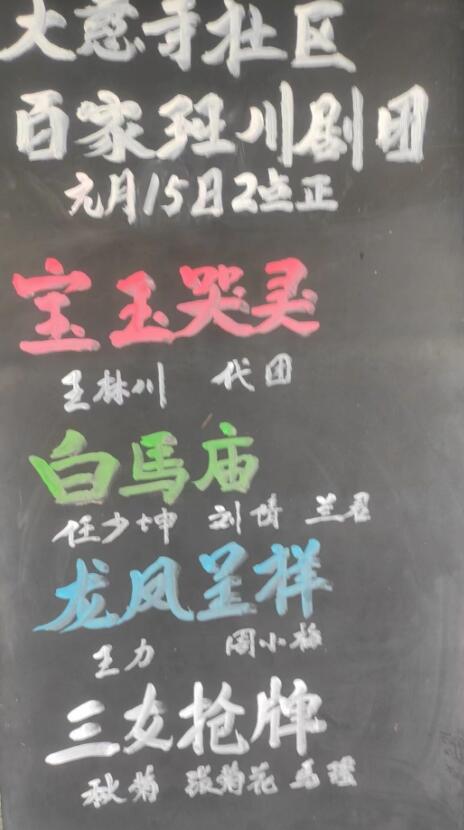 大慈寺社区
百家班川剧团
元月15日2点正
宝玉哭灵
王林川 代团
白馬庙
任少坤 刘倩 兰君
龙凤呈祥
王力 周小梅
三女抢牌
秋菊 张菊花